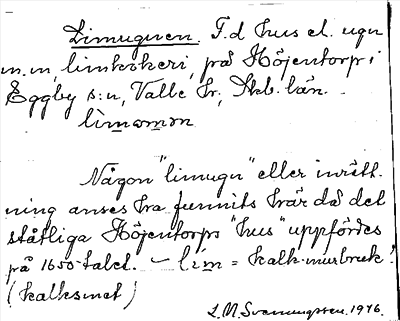 Limugnen. F.d hus el. ugn
m.m, limkokeri, på Höjentorp i
Eggby s:n, Valle hr, Skb. län.
Någon "limugn" eller inrätt-
ning anses ha funnits här då det
ståtliga Höjentorps "hus" uppfördes
på 1650-talet. - lim = kalk-murbruk!
(kalksmet)
1946.